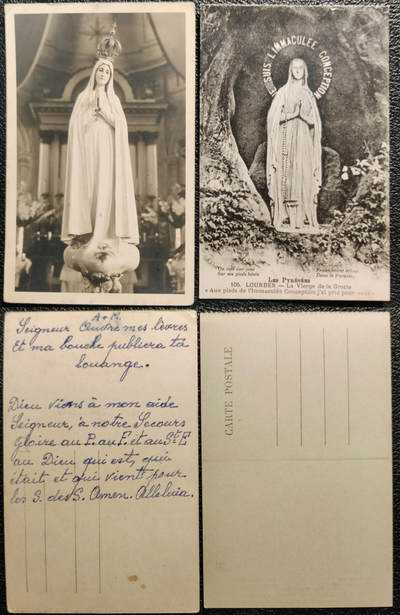 JE SUIS L'IMMACULÉE CONCEPTION
LES PYRÉNÉES
105. LOURDES — La Vierge de la Grotte
« Aux pieds de l'Immaculée Conception j'ai prié pour vous »
A + M.
Seigneur Ouvre mes lèvres
Et ma bouche publiera ta
louange.
Dieu viens à mon aide
Seigneur, à notre Secours
Gloire au P. au F. et au St E
au Dieu qui est, qui
était et qui vient pour
les S. des S. Amen. Alleluia.
CARTE POSTALE